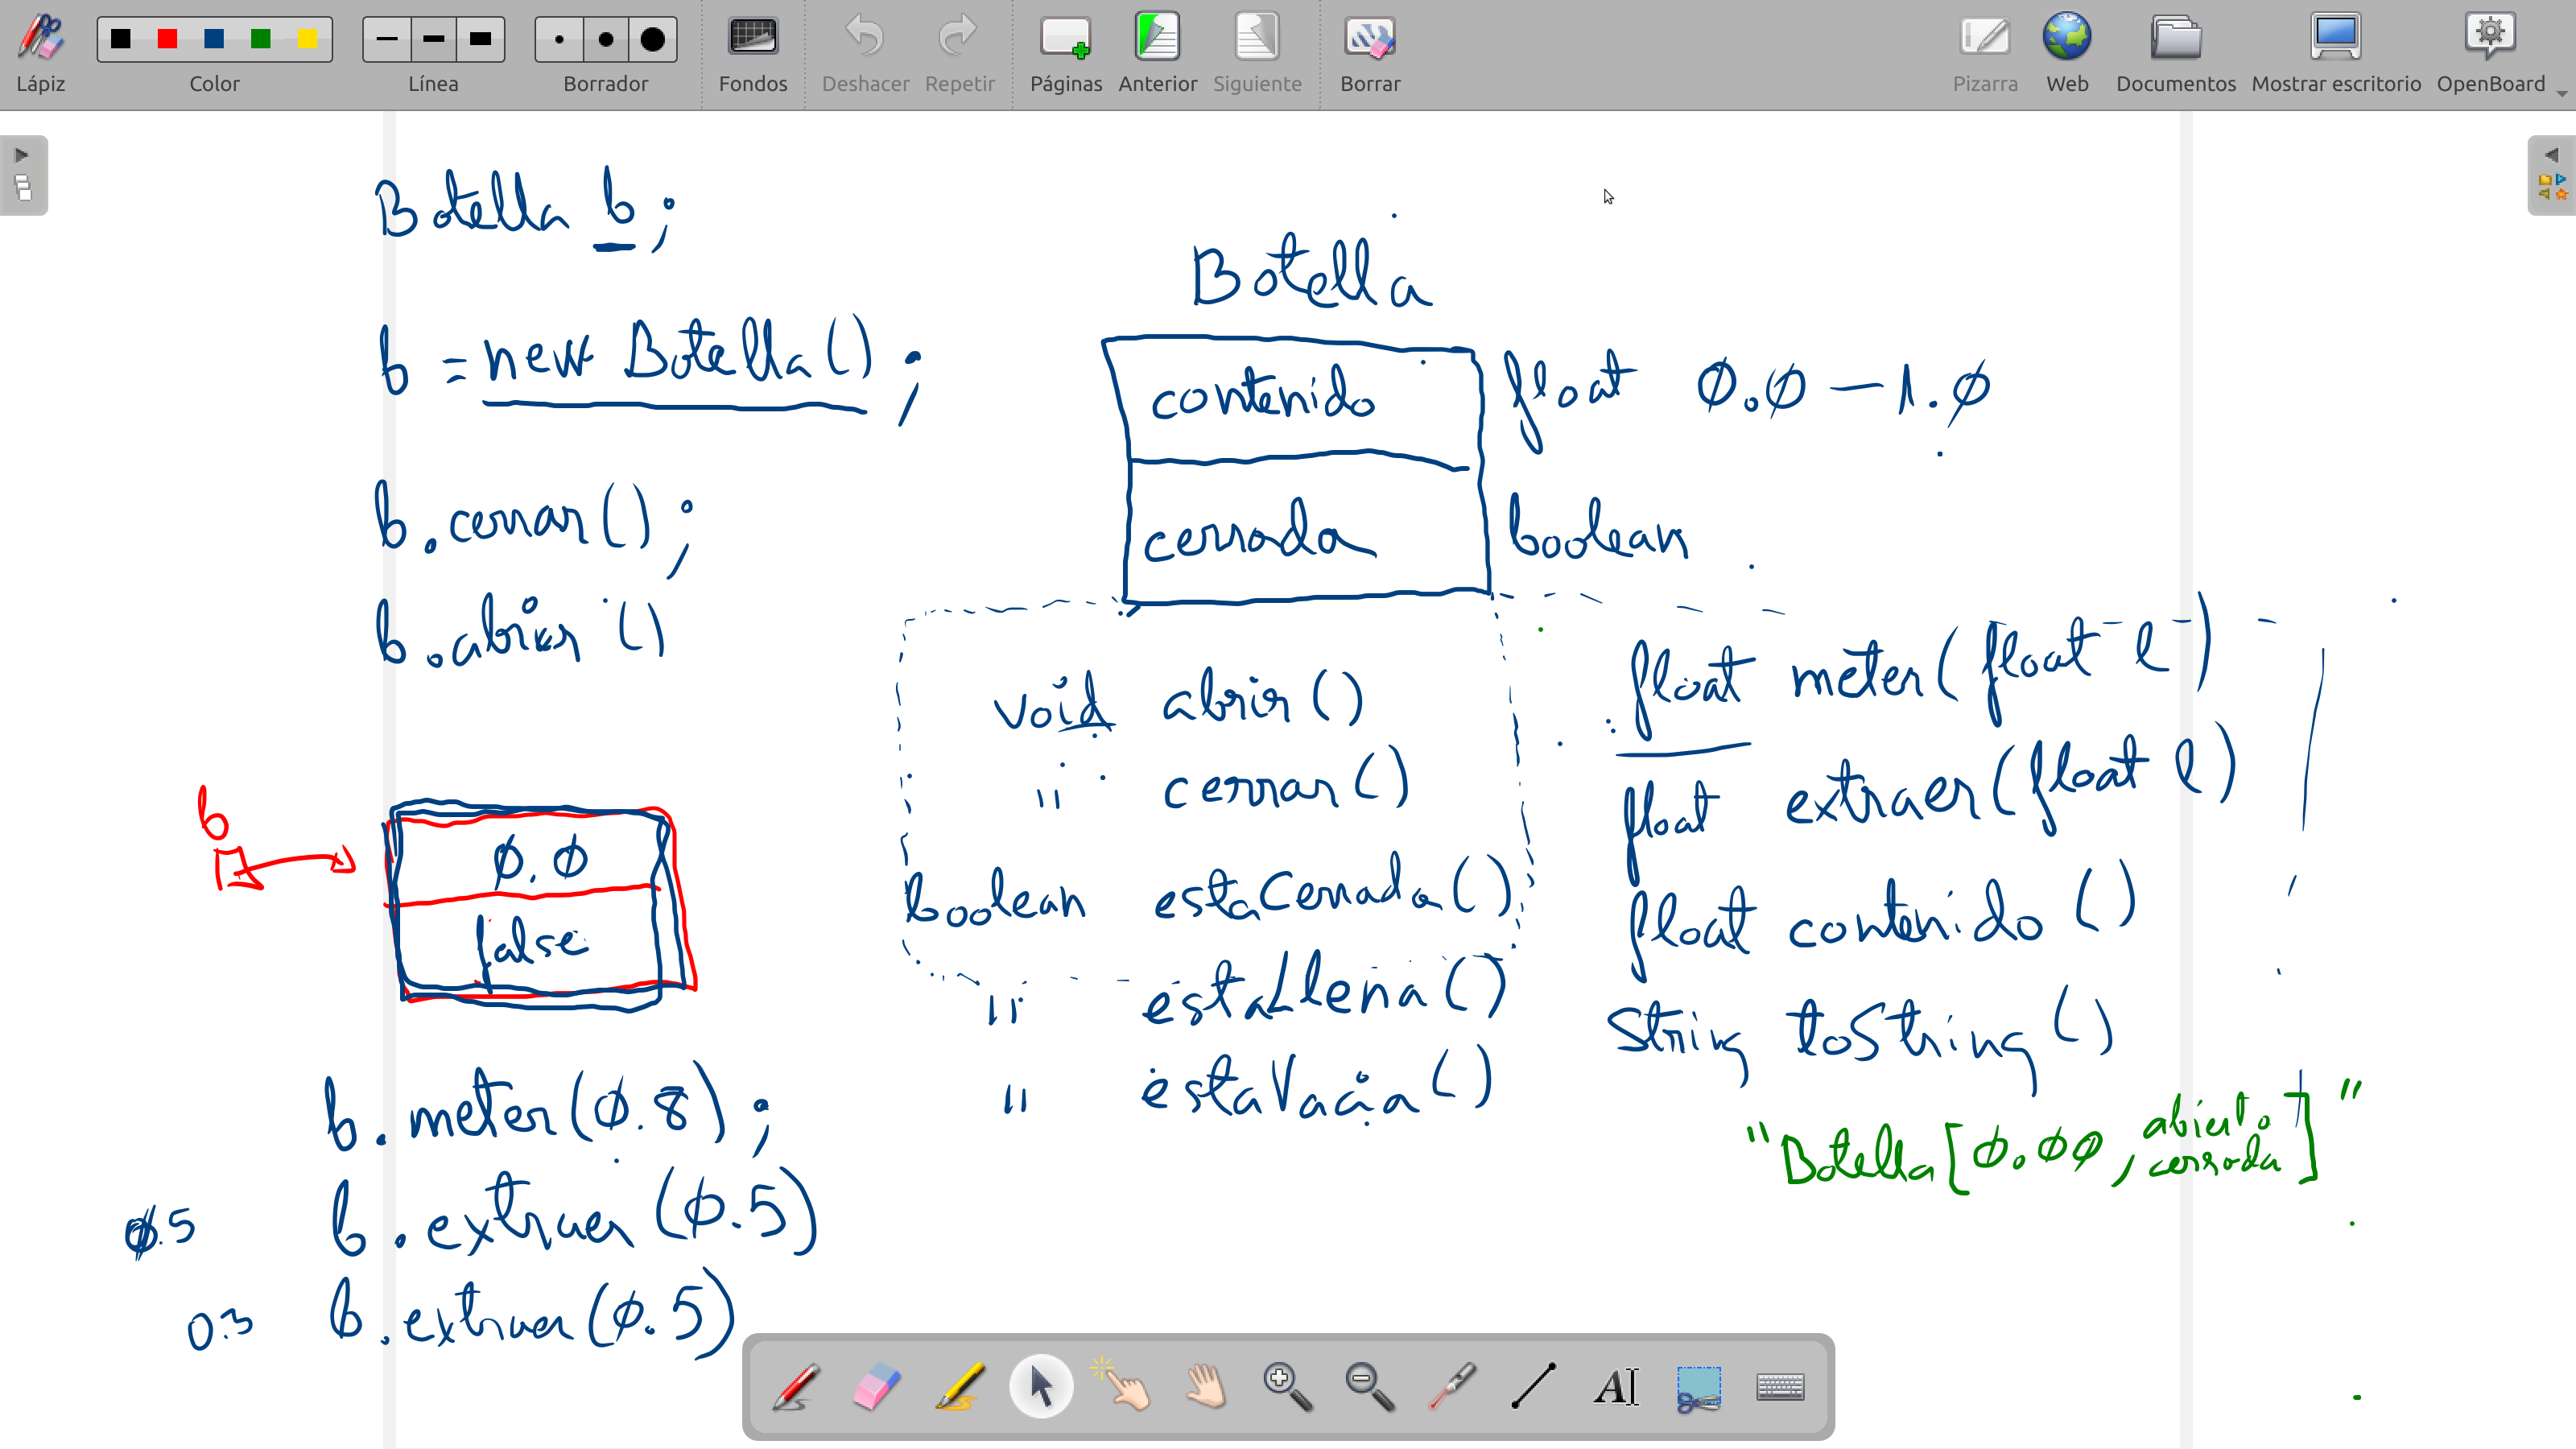 Lápiz Color Línea Borrador Fondos Deshacer Repetir Páginas Anterior Siguiente Borrar Pizarra Web Documentos Mostrar escritorio OpenBoard
Botella b;
b = new Botella();
b.cerrar();
b.abrir()
b
0.0
false
b.meter(0.8);
0.5 b.extraer(0.5)
0.3 b.extraer(0.5)
Botella
contenido float 0.0 – 1.0
cerrada boolean
void abrir()
" cerrar()
boolean estaCerrada()
" estaLlena()
" estaVacia()
float meter(float l)
float extraer(float l)
float contenido()
String toString()
"Botella[0.00, abierto cerrada]"
AI